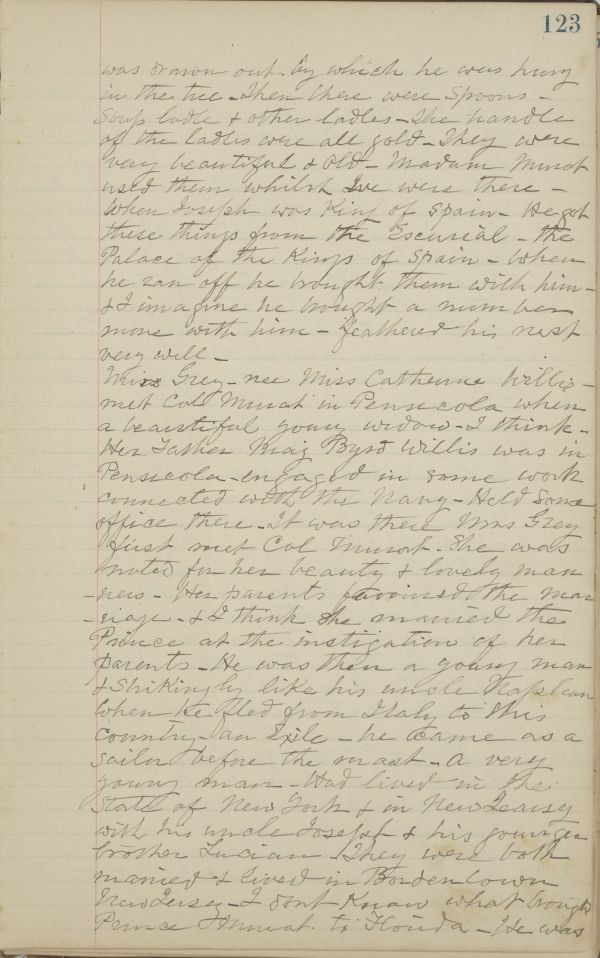 123
was drawn out. by which he was hung
in the tree - Then there were Spoons -
Soup ladle & other ladles - The handle
of the ladles were all gold - They were
very beautiful & old - Madam Murat
used them whilst we were there -
When Joseph was King of Spain - He got
these things from the Escurial - the
Palace of the Kings of Spain - When
he ran off he brought them with him -
& I imagine he brought a number
more with him - feathered his nest
very well -
Miss Grey - nee Miss Catherine Willis -
met Col Murat in Pensecola when
a beautiful young widow - I think -
Her Father Maj Byrd Willis was in
Pensecola - engaged in some work
connected with the Navy - Held Some
office there - It was there Mrs Grey
first met Col Murat. She was
noted for her beauty & lovely man
-ners - Her parents favoured the mar
-riage - & I think She married the
Prince at the instigation of her
parents - He was then a young man
& Strikingly like his uncle Naplean
When He fled from Italy to this
country - an Exile - he came as a
Sailor before the mast - a very
young man - Had lived in the
State of New York & in New Jersey
with his uncle Joseph & his younger
brother Lucian. They were both
married & lived in Bordentown
New Jersey - I dont Know what brought
Prince Murat to Florida - He was